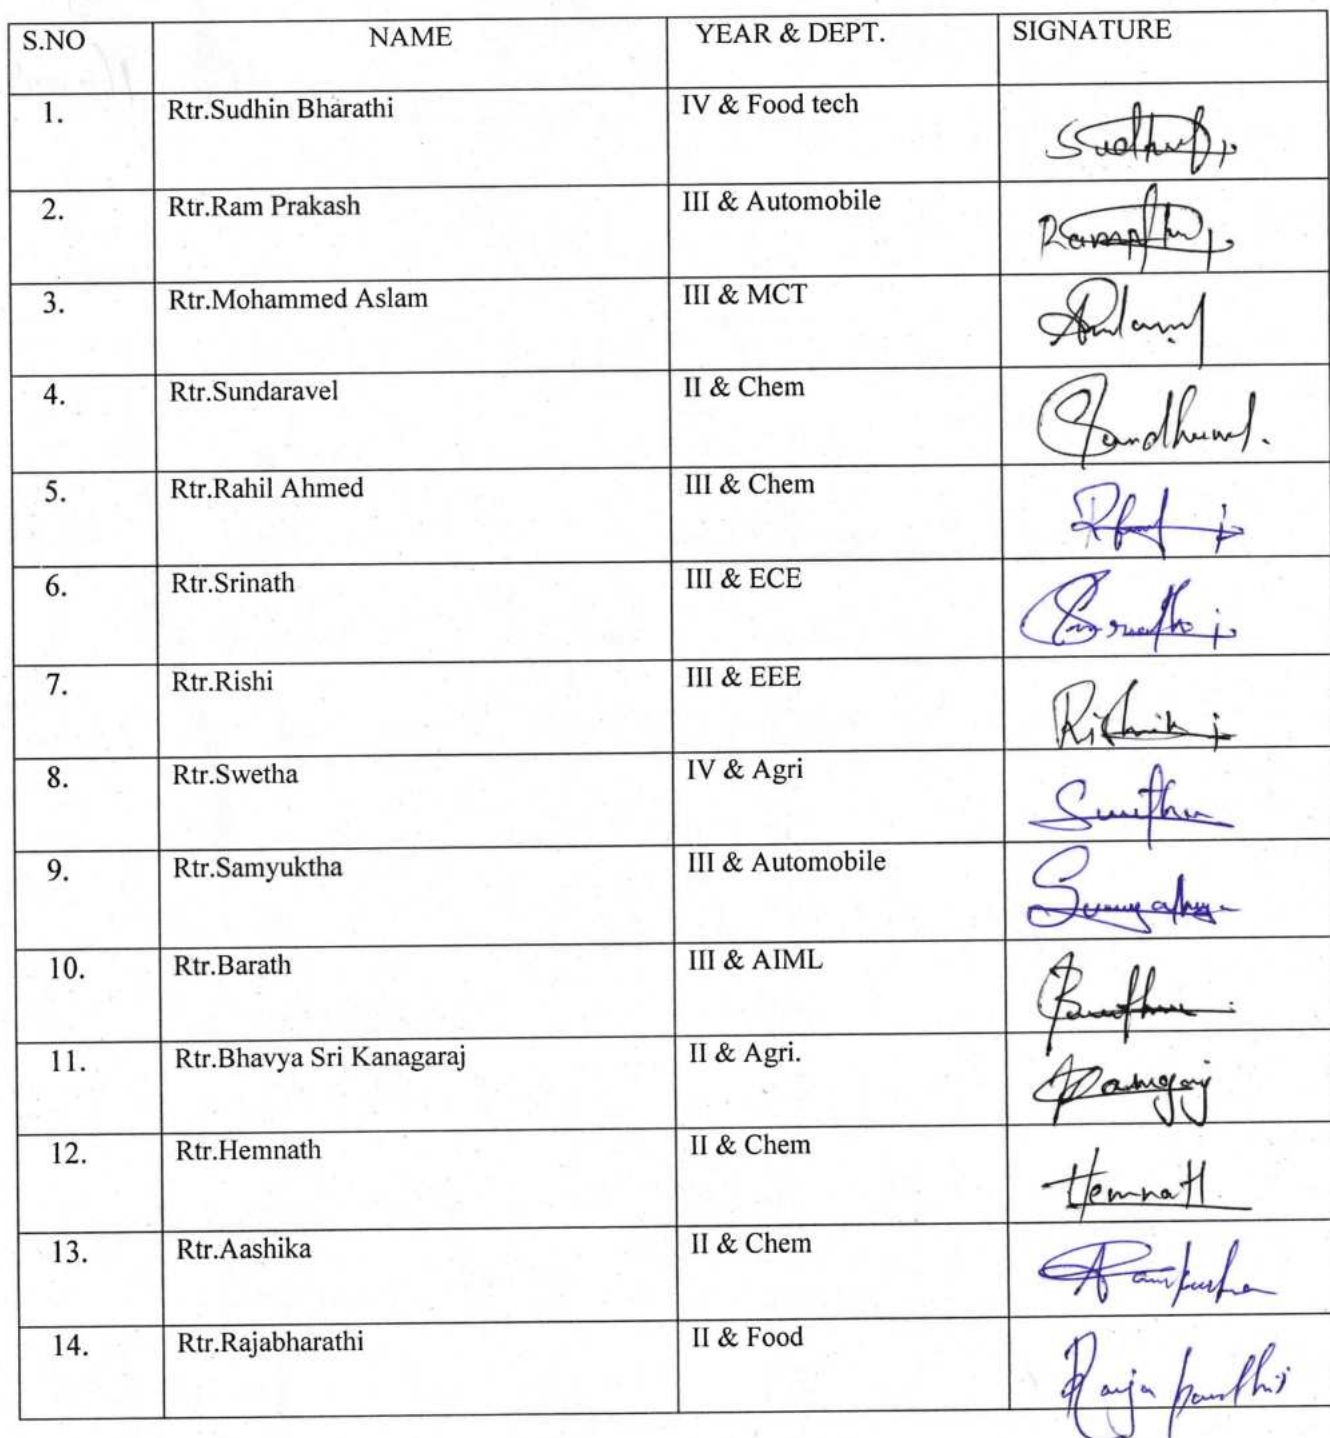 S.NO NAME YEAR & DEPT. SIGNATURE
1. Rtr.Sudhin Bharathi IV & Food tech
2. Rtr.Ram Prakash III & Automobile
3. Rtr.Mohammed Aslam III & MCT
4. Rtr.Sundaravel II & Chem
5. Rtr.Rahil Ahmed III & Chem
6. Rtr.Srinath III & ECE
7. Rtr.Rishi III & EEE
8. Rtr.Swetha IV & Agri
9. Rtr.Samyuktha III & Automobile
10. Rtr.Barath III & AIML
11. Rtr.Bhavya Sri Kanagaraj II & Agri.
12. Rtr.Hemnath II & Chem Hemnath
13. Rtr.Aashika II & Chem
14. Rtr.Rajabharathi II & Food